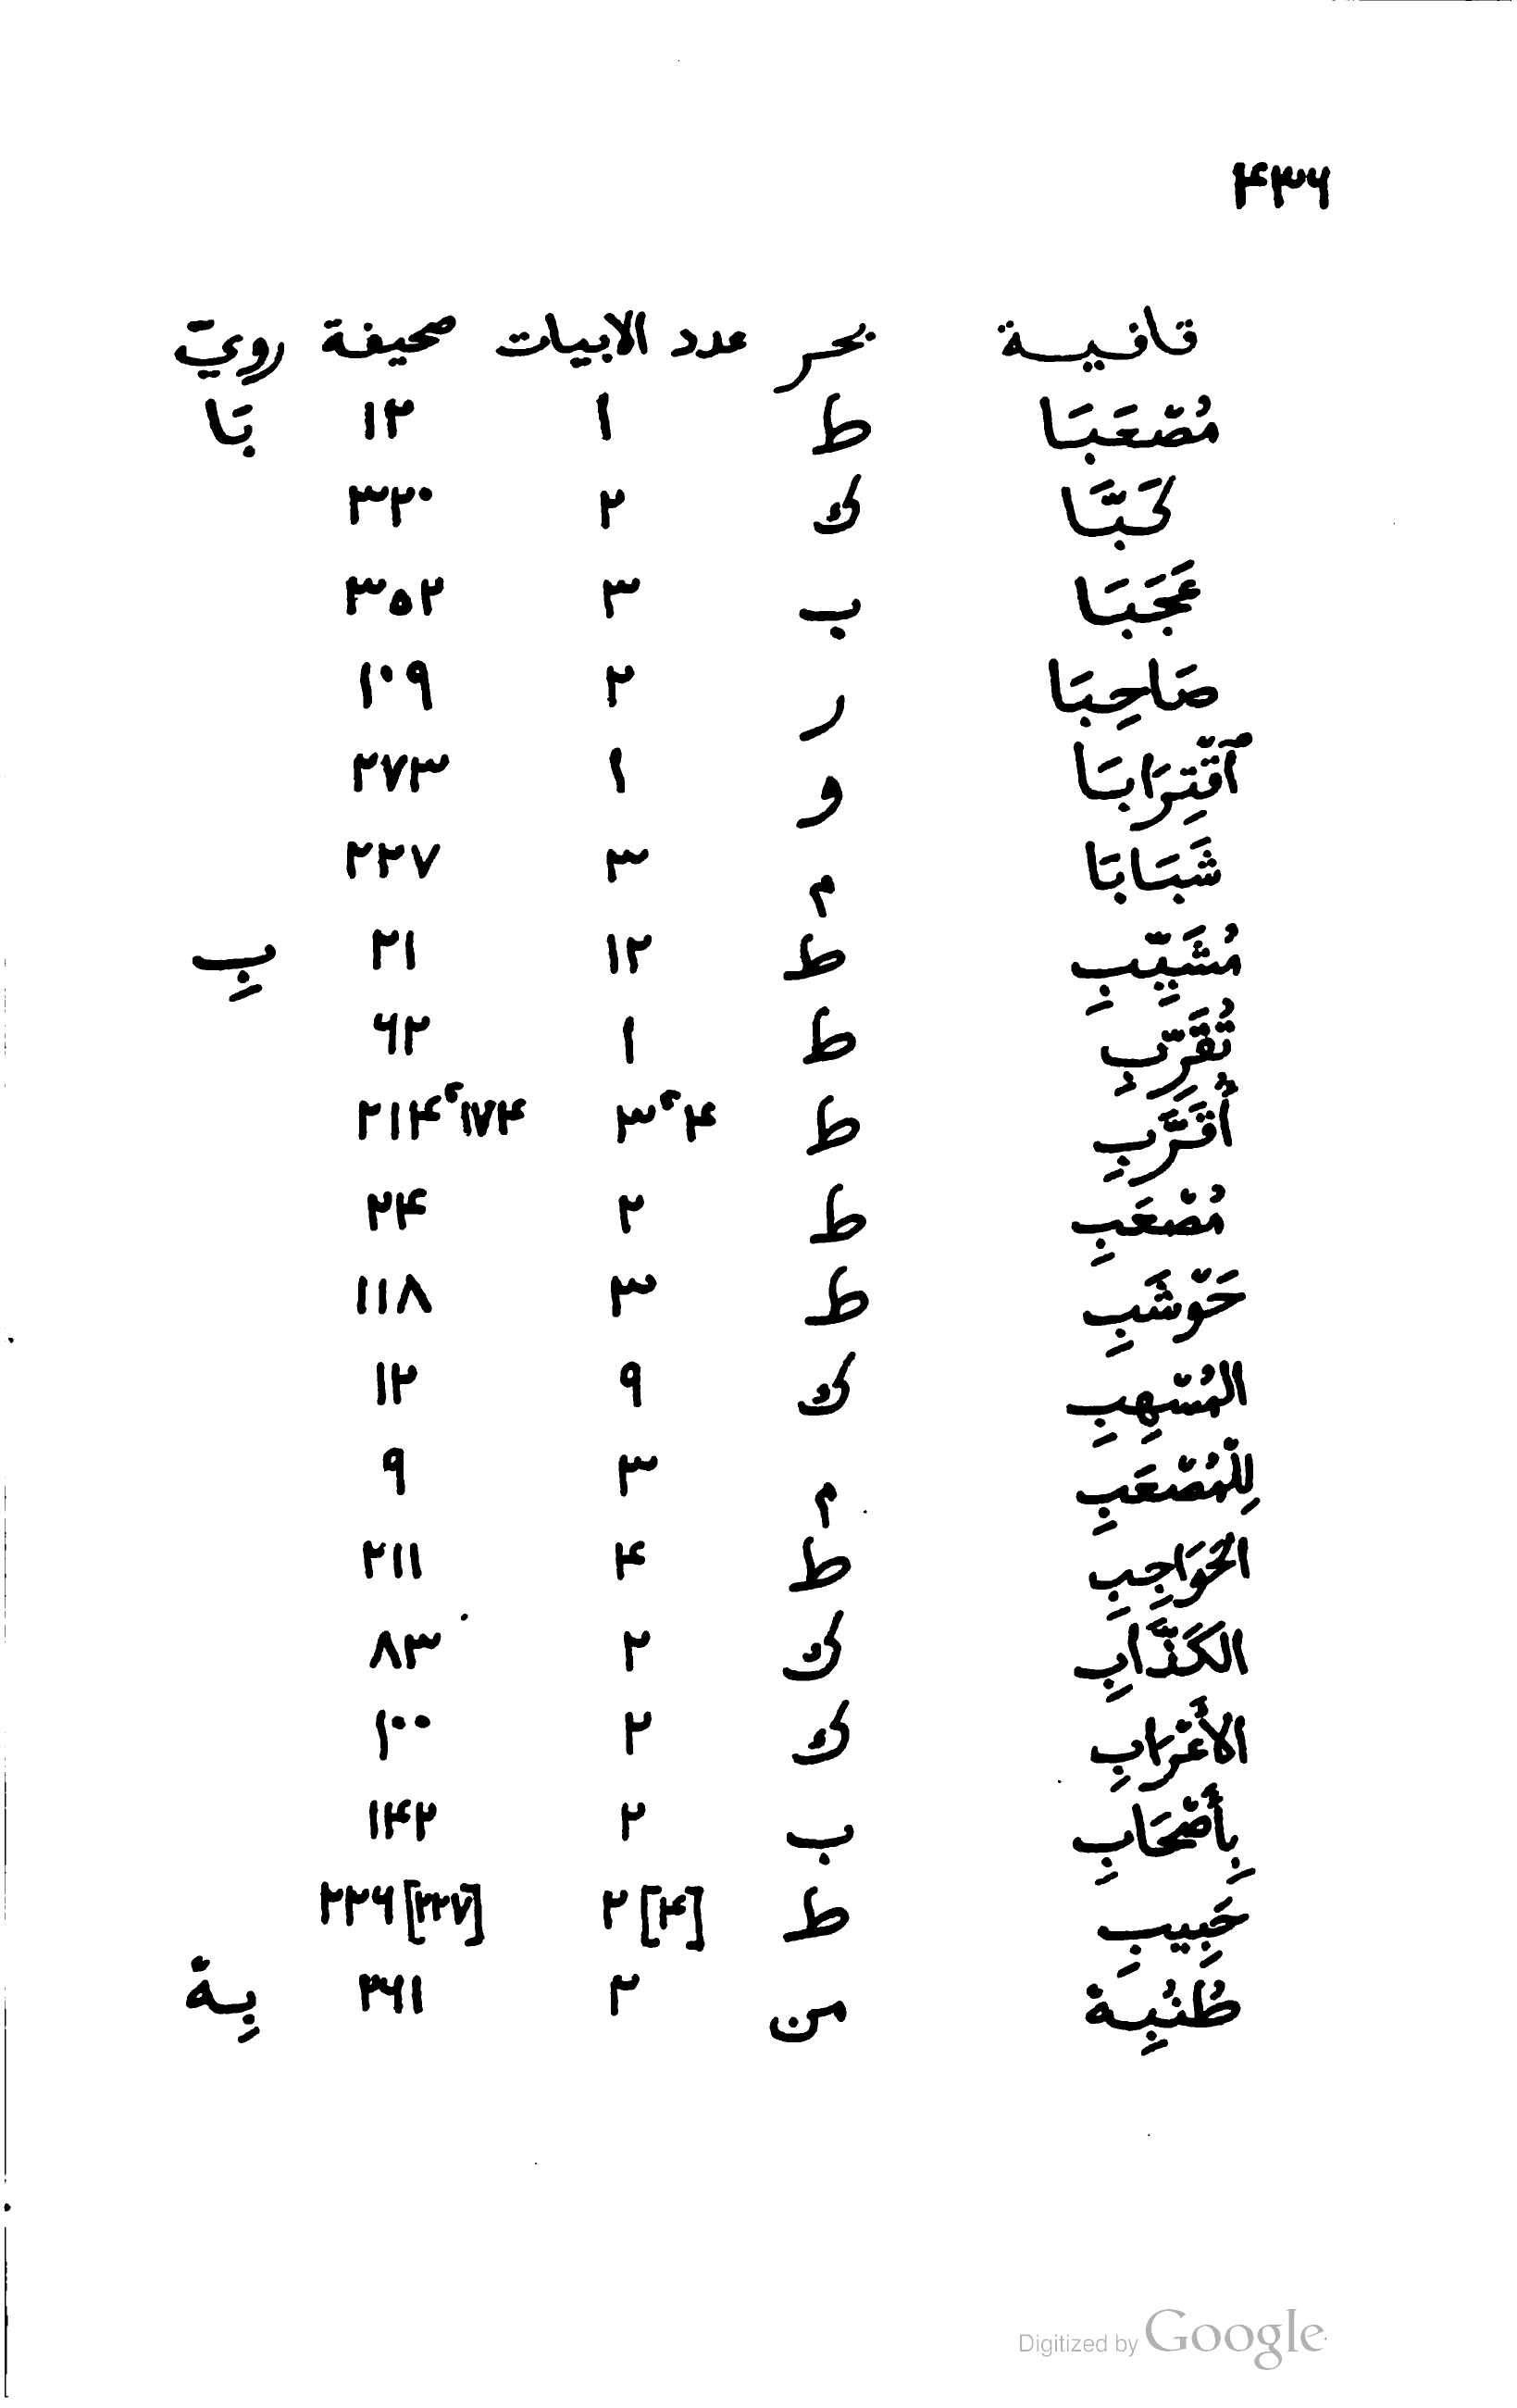 ٤٣٦
قافيـة بحـر عدد الابيات صحيفة رويّ
مُصْعَبَا ط ١ ١٢ بَا
كَبَّا ك ٢ ٣٢٠
عَجَبَا ب ٣ ٣٥٢
صَاحِبَا ر ٢ ١٠٩
ٱقْتِرَابَا و ١ ٢٧٣
شَبَابَا م ٣ ٢٢٧
مُشَيَّبِ ط ١٢ ٢١ بِ
تُقَرَّبِ ط ١ ٦٢
أُقَرَّبِ ط ٣،٤ ٢١٤،١٧٤
مُصْعَبِ ط ٢ ٢٤
حَوْشَبِ ط ٣ ١١٨
المُسْهِبِ ك ٩ ١٢
لِلْمُصْعَبِ م ٣ ٩
الحَوَاجِبِ ط ٤ ٢١١
الكَذَّابِ ك ٢ ٨٣
الأَعْرَابِ ك ٢ ١٠٠
بِأَصْحَابِ ب ٢ ١٤٢
حَبِيبِ ط ٢ [٤] ٢٢٦ [٢٢٧]
طُنُبِهْ من ٢ ٣٦١ بِهْ
Digitized by Google